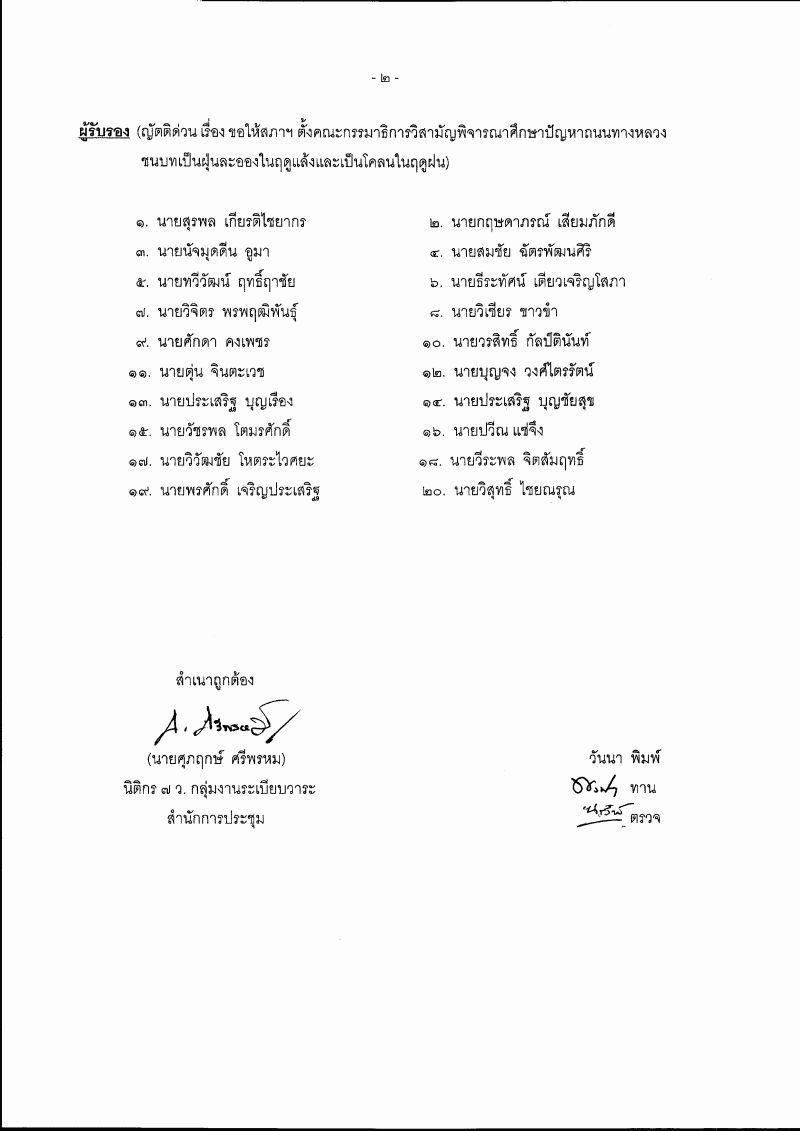 - ๒ -
ผู้รับรอง (ญัตติด่วน เรื่อง ขอให้สภาฯ ตั้งคณะกรรมาธิการวิสามัญพิจารณาศึกษาปัญหาถนนทางหลวง
ชนบทเป็นฝุ่นละอองในฤดูแล้งและเป็นโคลนในฤดูฝน)
๑. นายสุรพล เกียรติไชยากร ๒. นายกฤษดาภรณ์ เสียมภักดี
๓. นายนัจมุดดีน อูมา ๔. นายสมชัย ฉัตรพัฒนศิริ
๕. นายทวีวัฒน์ ฤทธิ์ฤาชัย ๖. นายธีระทัศน์ เตียวเจริญโสภา
๗. นายวิจิตร พรพฤฒิพันธุ์ ๘. นายวิเชียร ขาวขำ
๙. นายศักดา คงเพชร ๑๐. นายวรสิทธิ์ กัลป์ตินันท์
๑๑. นายตุ่น จินตะเวช ๑๒. นายบุญจง วงศ์ไตรรัตน์
๑๓. นายประเสริฐ บุญเรือง ๑๔. นายประเสริฐ บุญชัยสุข
๑๕. นายวัชรพล โตมรศักดิ์ ๑๖. นายปวีณ แซ่จึง
๑๗. นายวิวัฒชัย โหตระไวศยะ ๑๘. นายวีระพล จิตสัมฤทธิ์
๑๙. นายพรศักดิ์ เจริญประเสริฐ ๒๐. นายวิสุทธิ์ ไชยณรุณ
สำเนาถูกต้อง
(นายศุภฤกษ์ ศรีพรหม) วันนา พิมพ์
นิติกร ๗ ว. กลุ่มงานระเบียบวาระ ทาน
สำนักการประชุม ตรวจ